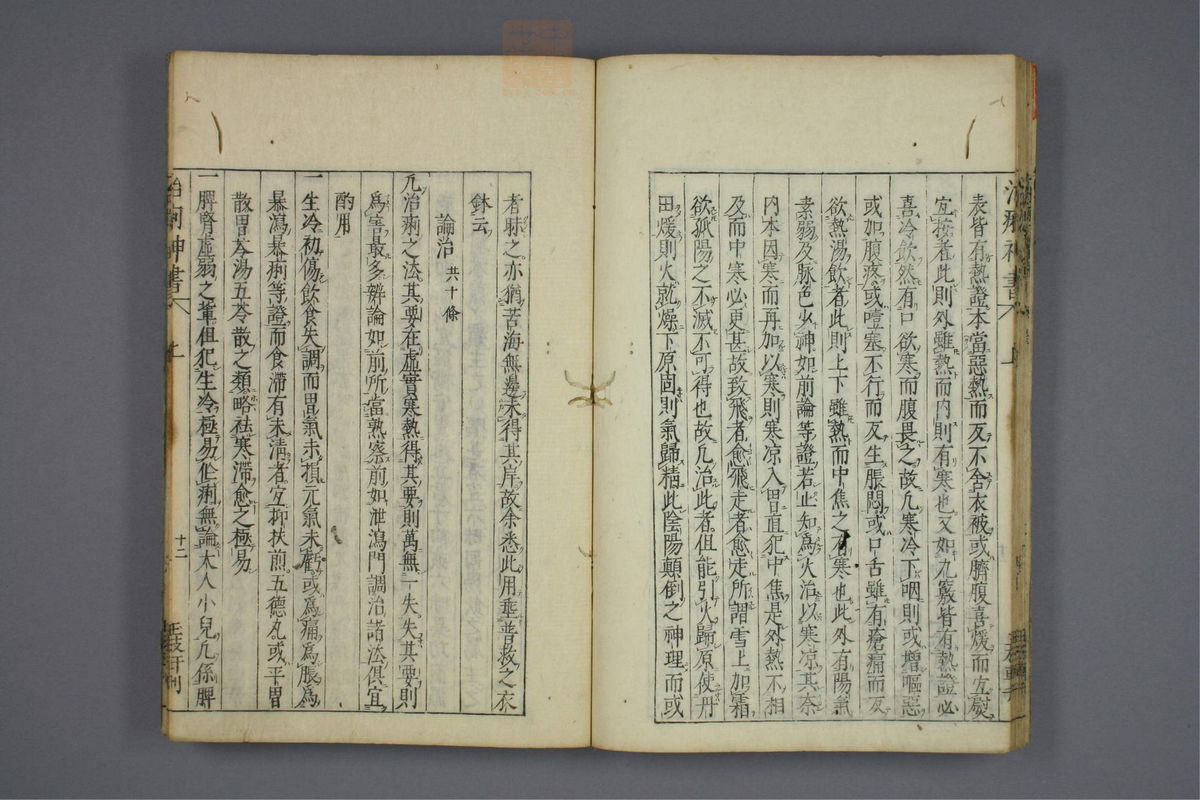 表皆有熱證本當惡熱而反不舍衣被或臍腹喜煖而宜熨
宜按者此則外雖熱而內則有寒也又如九竅皆有熱證必
喜冷飲然有口欲寒而腹畏之故凡寒冷下咽則或增嘔惡
或如腹疼或噎塞不行而反生脹悶或口舌雖有瘡痛而反
欲熱湯飲者此則上下雖熱而中焦之有寒也此外有陽氣
素弱及脉色少神如前論等證若止知爲火治以寒凉其奈
內本因寒而再加以寒則寒凉入胃直犯中焦是外熱不相
及而中寒必更甚故致飛者愈飛走者愈走所謂雪上加霜
欲孤陽之不滅不可得也故凡治此者但能引火歸原使丹
田煖則火就燥下原固則氣歸精此陰陽顛倒之神理而或
者昧之亦猶苦海無邊未得其岸故余悉此用垂普救之衣
鉢云
論治 共十條
凡治痢之法其要在虛實寒熱得其要則萬無一失失其要則
爲害最多辨論如前所當熟察前如泄瀉門調治諸法俱宜
酌用
一生冷初傷飲食失調而胃氣未損元氣未虧或爲痛爲脹爲
暴瀉暴痢等證而食滯有未清者宜抑扶煎五德丸或平胃
散胃苓湯五苓散之類略祛寒滯愈之極易
一脾腎虛弱之輩但犯生冷極易作痢無論大人小兒凡係脾
治痢神書 上 十二